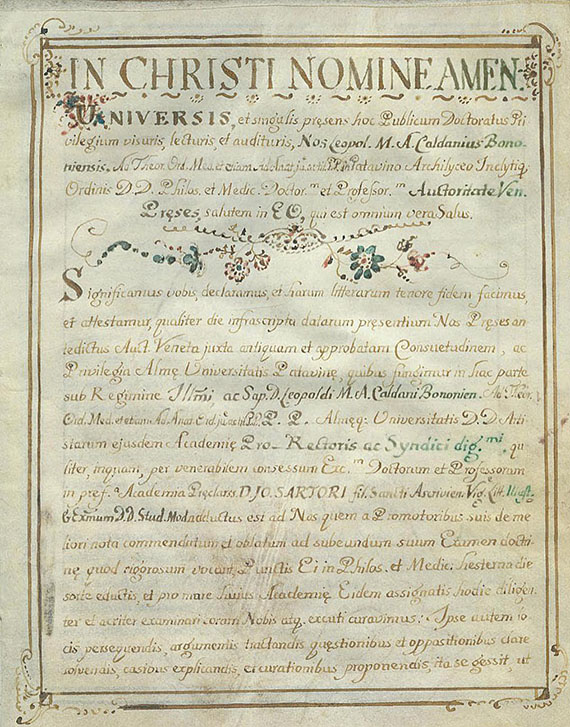 IN CHRISTI NOMINE AMEN.
UNIVERSIS, et singulis presens hoc Publicum Doctoratus Pri
vilegium visuris, lecturis et audituris, Nos Leopol. M. A. Caldanius Bono-
niensis. Ad Theor. Ord. Med. et etiam Ad Anat. Patavino Archilyceo Inclytiq.
Ordinis D. D. Philos. et Medic. Doctor.m et Profeßor.m Auctoritate Ven.
Pręses, salutem in EO, qui est omnium vera Salus.
Significamus vobis, declaramus, et harum litterarum tenore fidem facimus
et attestamur, qualiter die infrascripta datarum pręsentium Nos Pręses an
tedictus Auct. Veneta juxta antiquam et approbatam Consuetudinem, ac
Privilegia Almę Universitatis Patavinę, quibus fungimur in hac parte
sub Regimine Illmi ac Sap. D. Leopoldi M. A. Caldani Bononien. Ad Theor.
Ord. Med. et etiam Ad Anat. P. P. Almęq: Universitatis D. D. Arti-
starum ejusdem Academię Pro-Rectoris ac Syndici dig.mi, qu
liter inquam, per venerabilem consessum Exc.m Doctorum et Professorum
in pref.a Academia Pręclariss. D. JO. SARTORI fil. Sancti Illust.
& Eximium D. D. Stud. Mod. adductus est ad Nos quem a Promotoribus suis de me
liori nota commendatum et oblatum ad subeundum suum Examen doctri
nę quod rigorosum vocant, Punctis Ei in Philos. et Medic. hesterna die
sorte eductis, et pro more hujus Academię Eidem assignatis hodie diligen
ter et acriter examinari coram Nobis atq. excuti curavimus: Ipse autem lo
cis persequendis, argumentis tractandis quęstionibus et oppositionibus clare
solvendis, casibus explicandis, et curationibus proponendis, ita se gessit, ut